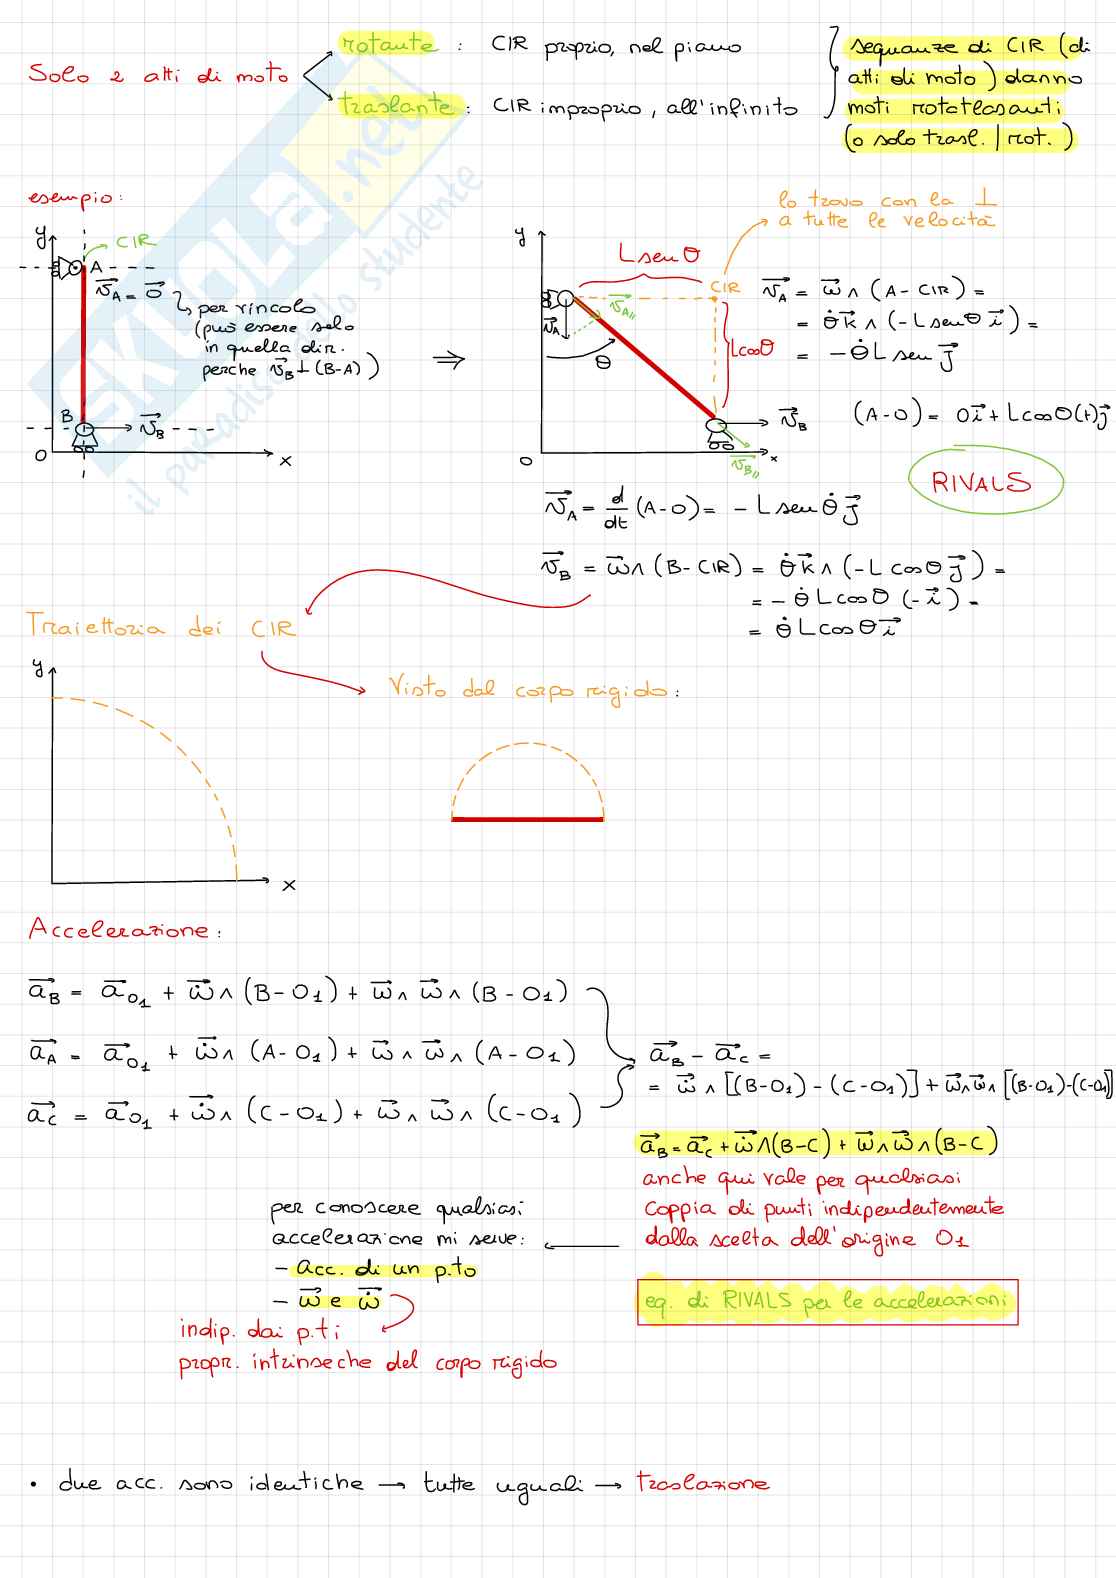 Solo 2 atti di moto
rotante : CIR proprio, nel piano
traslante : CIR improprio, all'infinito
sequanze di CIR (di
atti di moto) danno
moti rototraslanti
(o solo trasl. | rot.)
SKUOLA.net
il paradiso dello studente
esempio:
y
CIR
A
v⃗A = 0⃗
per vincolo
(può essere solo
in quella dir.
perche v⃗B ⊥ (B-A))
B
v⃗B
O
x
⇒
lo trovo con la ⊥
a tutte le velocità
y
L senθ
CIR
v⃗A
v⃗A∥
θ
Lcosθ
v⃗B
v⃗B∥
O
x
v⃗A = ω⃗ ∧ (A - CIR) =
= θ̇k⃗ ∧ (-L senθ i⃗) =
= -θ̇ L sen j⃗
(A-O) = 0i⃗ + L cosθ(t)j⃗
RIVALS
v⃗A = d/dt (A-O) = - L sen θ̇ j⃗
v⃗B = ω⃗ ∧ (B - CIR) = θ̇k⃗ ∧ (-L cosθ j⃗) =
= - θ̇ L cosθ (-i⃗) =
= θ̇ L cosθ i⃗
Traiettoria dei CIR
Visto dal corpo rigido:
y
x
Accelerazione:
a⃗B = a⃗O1 + ω̇⃗ ∧ (B-O1) + ω⃗ ∧ ω⃗ ∧ (B-O1)
a⃗A = a⃗O1 + ω̇⃗ ∧ (A-O1) + ω⃗ ∧ ω⃗ ∧ (A-O1)
a⃗C = a⃗O1 + ω̇⃗ ∧ (C-O1) + ω⃗ ∧ ω⃗ ∧ (C-O1)
a⃗B - a⃗C =
= ω̇⃗ ∧ [(B-O1) - (C-O1)] + ω⃗∧ω⃗∧ [(B-O1)-(C-O1)]
a⃗B = a⃗C + ω̇⃗ ∧(B-C) + ω⃗ ∧ ω⃗ ∧ (B-C)
anche qui vale per qualsiasi
coppia di punti indipendentemente
dalla scelta dell'origine O1
per conoscere qualsiasi
accelerazione mi serve:
- acc. di un p.to
- ω⃗ e ω̇⃗
indip. dai p.ti
propr. intrinseche del corpo rigido
eq. di RIVALS per le accelerazioni
• due acc. sono identiche → tutte uguali → traslazione